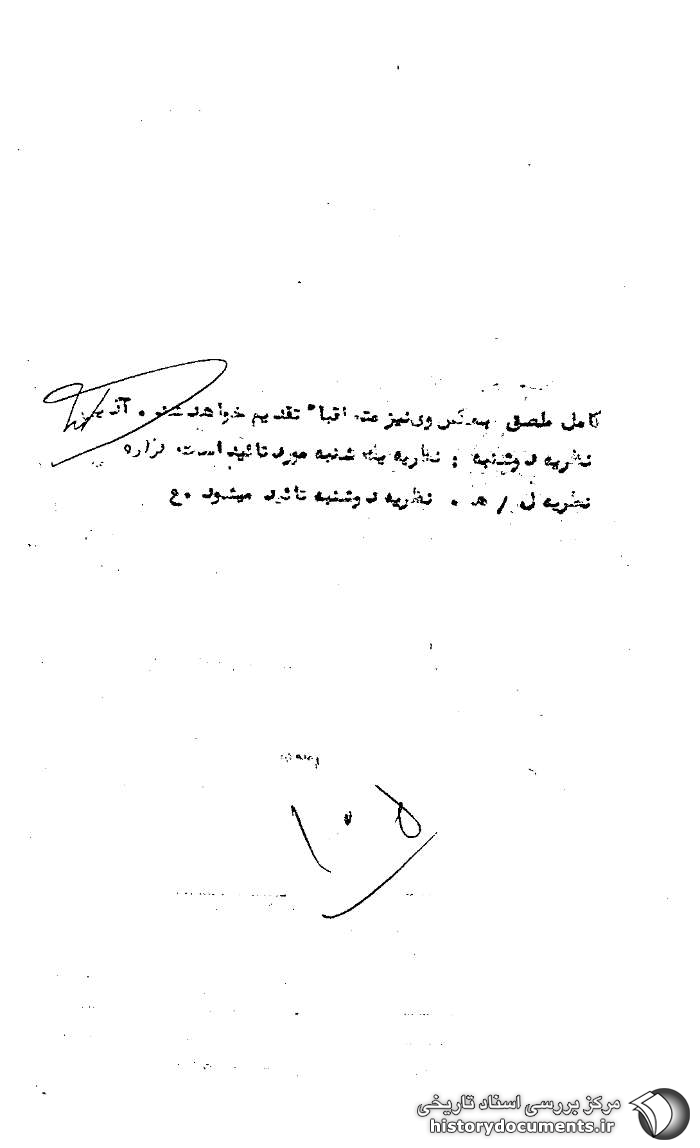 کامل ملصق بعکس وی نیز متعاقبا" تقدیم خواهد شد . آذین
نظریه دوشنبه : نظریه یکشنبه مورد تائید است. فزاره
نظریه ل / هـ . نظریه دوشنبه تائید میشود . ع
۱۰۵
مرکز بررسی اسناد تاریخی
historydocuments.ir